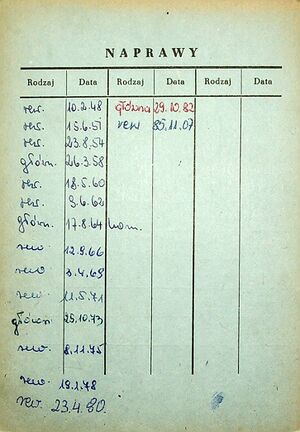 NAPRAWY
Rodzaj Data Rodzaj Data Rodzaj Data
rew. 10.2.48 główna 29.10.82
rew. 15.6.51 rew 85.11.07
rew. 23.8,54
główn. 26.3.58
rew. 18.5.60
rew. 9.6.62
główn. 17.8.64 kom.
rew 12.9.66
rew 3.4.69
rew 11.5.71
główn 29.10.73
rew. 8.11.75
rew. 19.1.78
rew. 23.4.80.